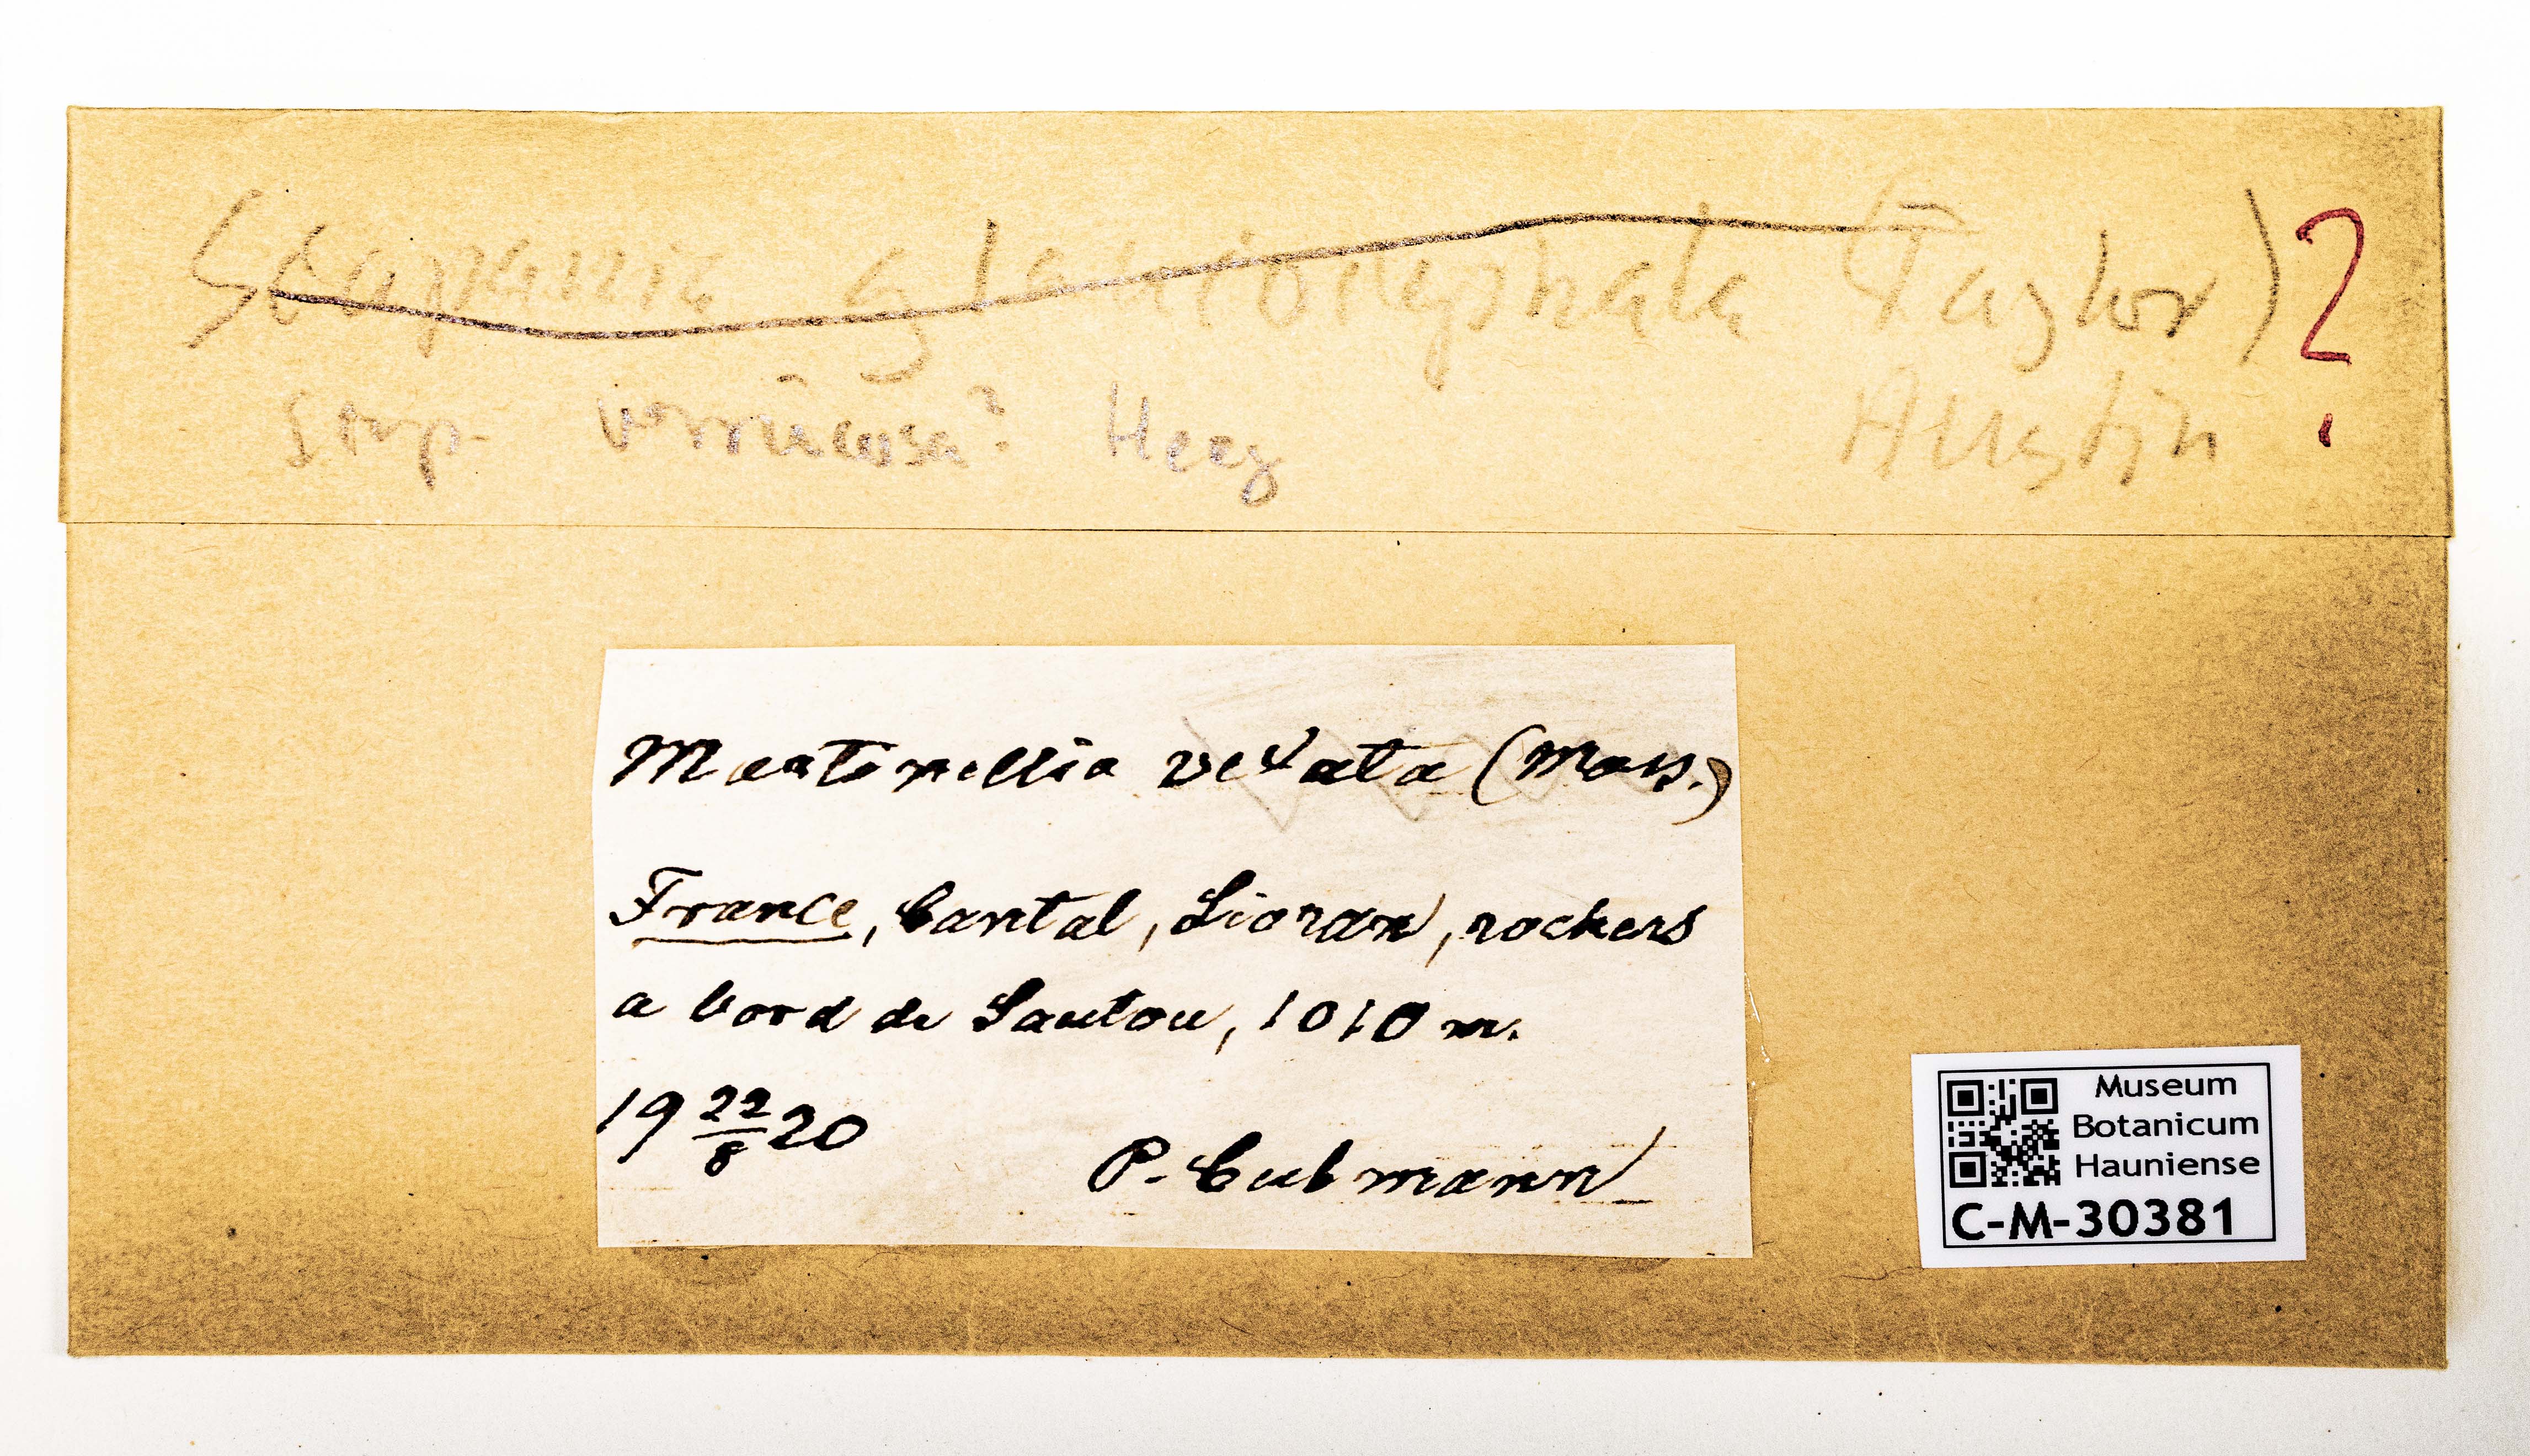 Scapania glaucocephala (Taylor) ?
Austin
Scap. verrucosa? Heeg
Martinellia vexata (Mass.)
France, Cantal, Lioran, rochers
a bord de Sautou, 1010 m.
19 22/8 20
P. Culmann
Museum
Botanicum
Hauniense
C-M-30381